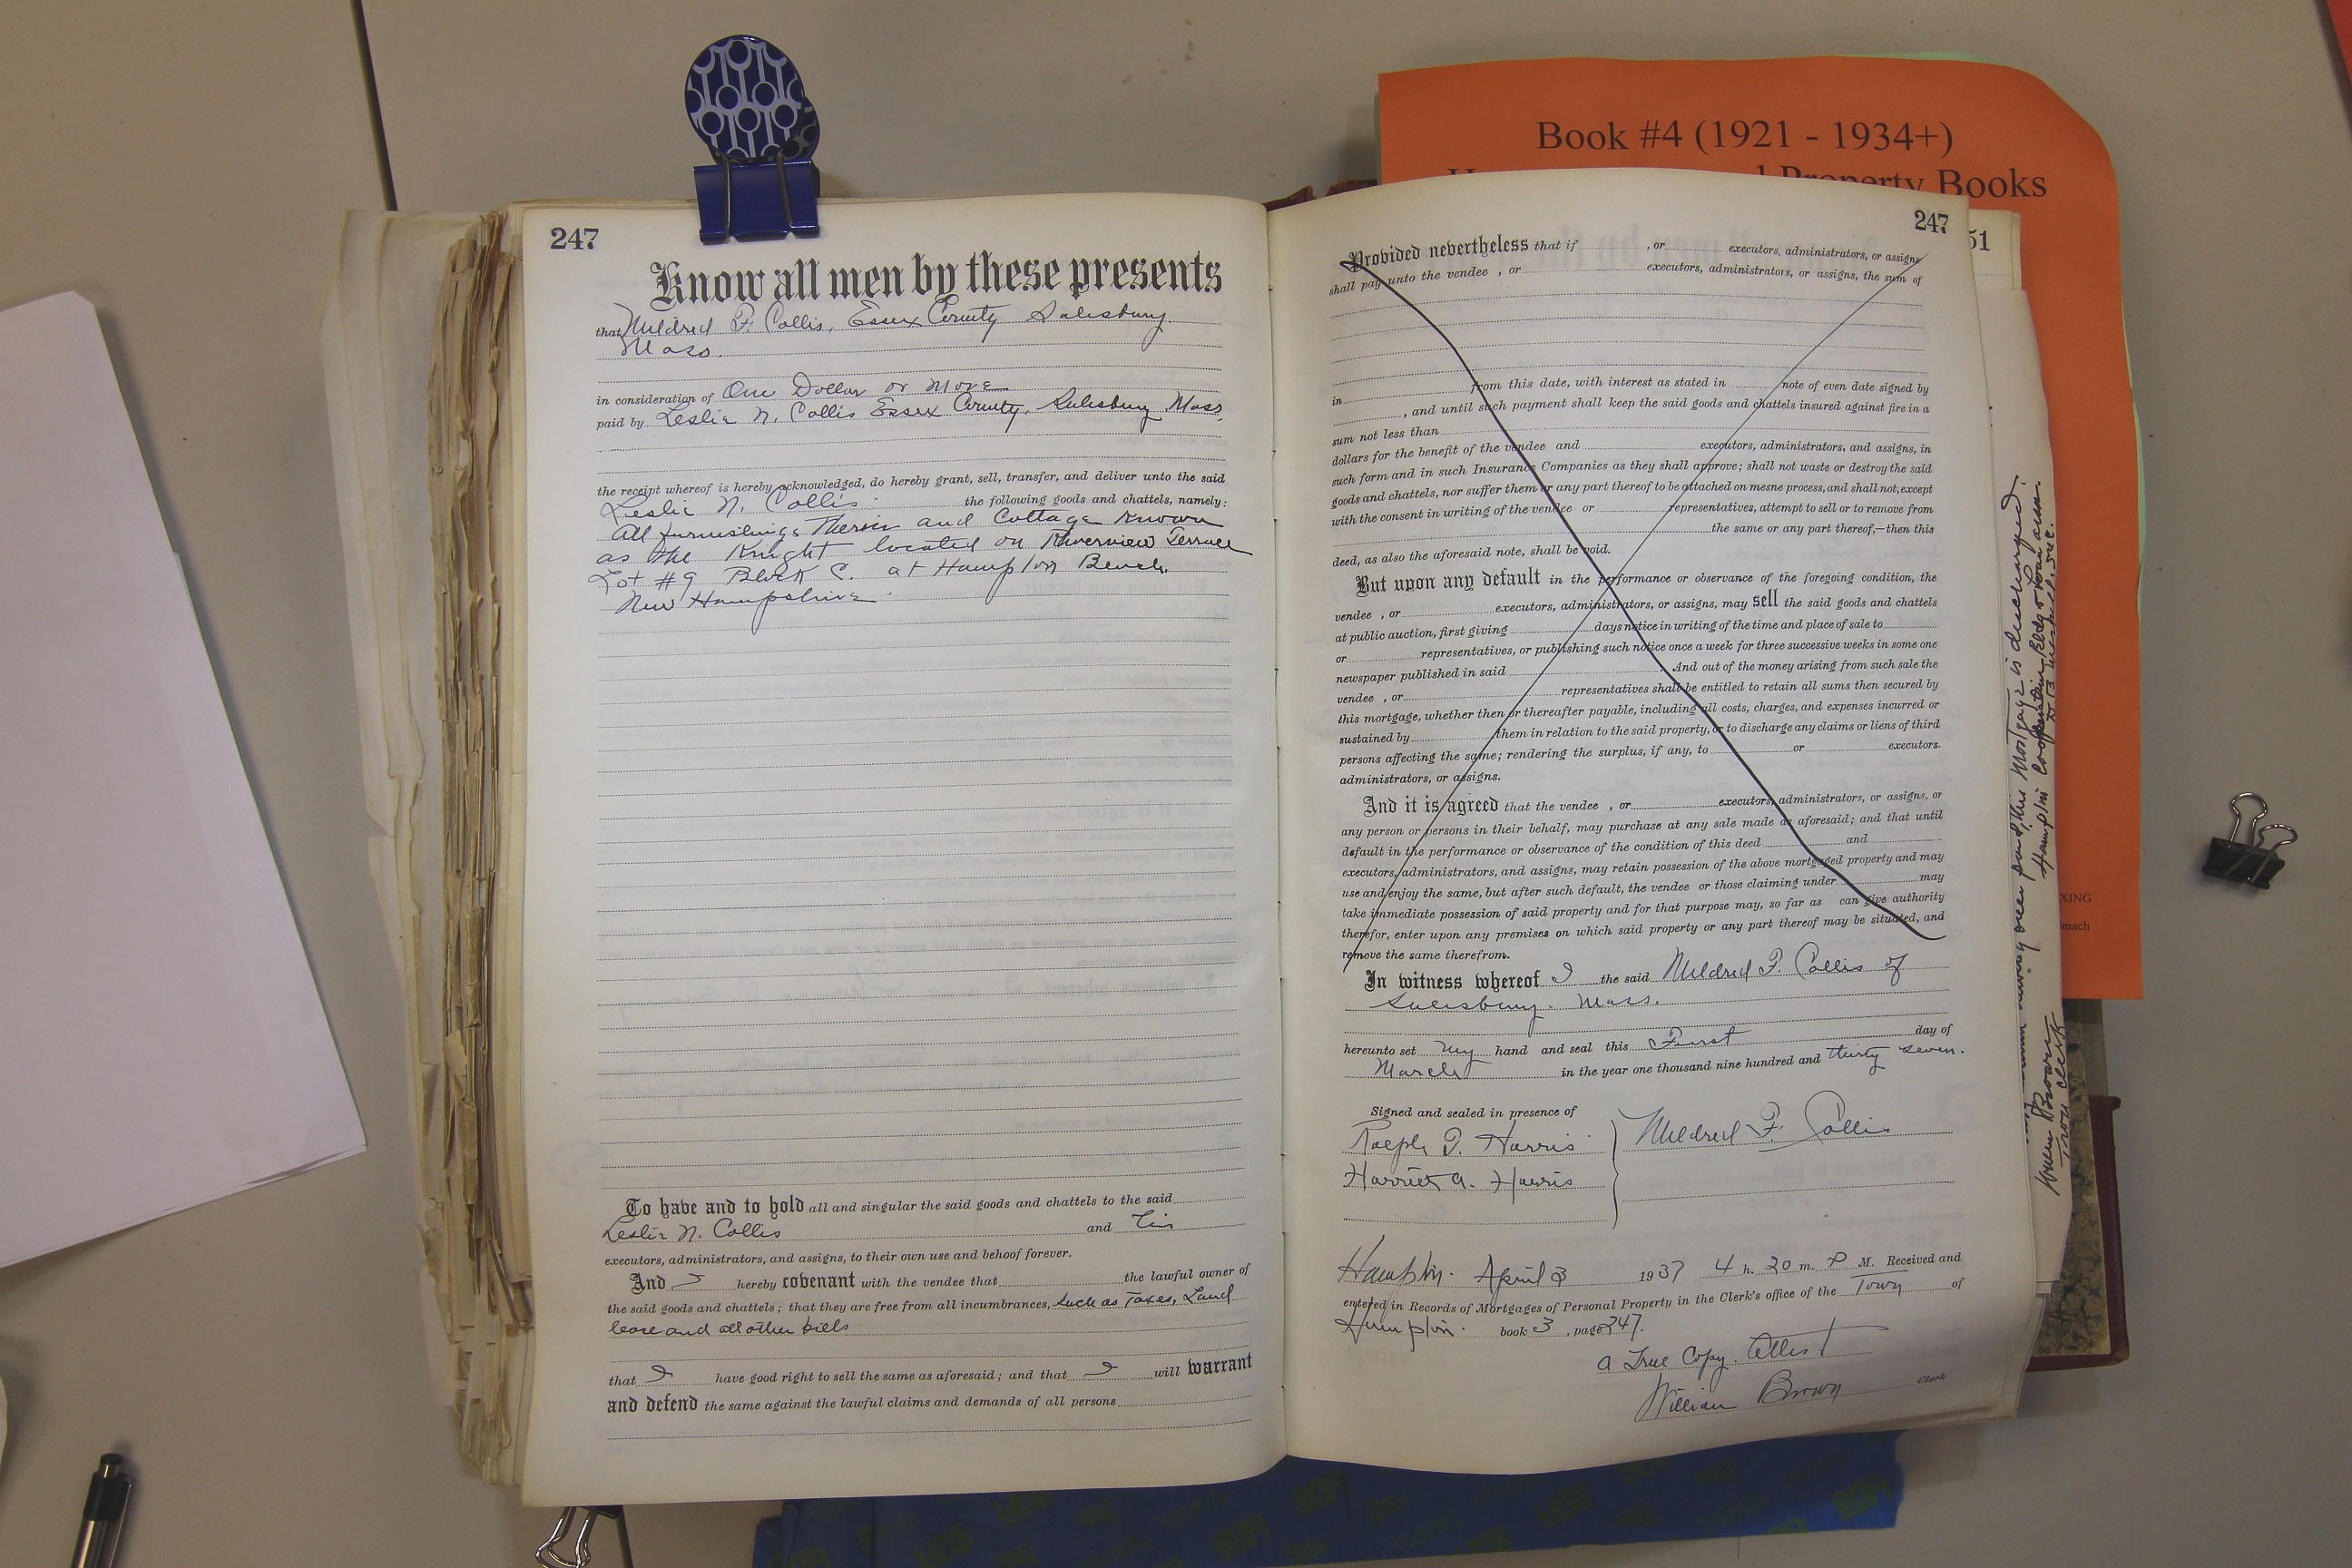 Book #4 (1921 - 1934+)
Property Books
247
Know all men by these presents
that Mildred F. Collis, Essex County Salisbury
Mass.
in consideration of One Dollar or More
paid by Leslie N. Collis Essex County, Salisbury Mass.
the receipt whereof is hereby acknowledged, do hereby grant, sell, transfer, and deliver unto the said
Leslie N. Collis the following goods and chattels, namely:
All furnishings Therin and Cottage Known
as the Knight located on Riverview Terrace
Lot #9 Block C. at Hampton Beach
New Hampshire.
To have and to hold all and singular the said goods and chattels to the said
Leslie N. Collis and his
executors, administrators, and assigns, to their own use and behoof forever.
And I hereby covenant with the vendee that the lawful owner of
the said goods and chattels; that they are free from all incumbrances, such as Taxes, Land
lease and all other bills
that I have good right to sell the same as aforesaid; and that I will warrant
and defend the same against the lawful claims and demands of all persons
247
51
Provided nevertheless that if , or executors, administrators, or assigns
shall pay unto the vendee , or executors, administrators, or assigns, the sum of
in from this date, with interest as stated in note of even date signed by
, and until such payment shall keep the said goods and chattels insured against fire in a
sum not less than
dollars for the benefit of the vendee and executors, administrators, and assigns, in
such form and in such Insurance Companies as they shall approve; shall not waste or destroy the said
goods and chattels, nor suffer them or any part thereof to be attached on mesne process, and shall not, except
with the consent in writing of the vendee or representatives, attempt to sell or to remove from
the same or any part thereof,—then this
deed, as also the aforesaid note, shall be void.
But upon any default in the performance or observance of the foregoing condition, the
vendee , or executors, administrators, or assigns, may sell the said goods and chattels
at public auction, first giving days notice in writing of the time and place of sale to
or representatives, or publishing such notice once a week for three successive weeks in some one
newspaper published in said . And out of the money arising from such sale the
vendee , or representatives shall be entitled to retain all sums then secured by
this mortgage, whether then or thereafter payable, including all costs, charges, and expenses incurred or
sustained by them in relation to the said property, or to discharge any claims or liens of third
persons affecting the same; rendering the surplus, if any, to or executors.
administrators, or assigns.
And it is agreed that the vendee , or executors, administrators, or assigns, or
any person or persons in their behalf, may purchase at any sale made as aforesaid; and that until
default in the performance or observance of the condition of this deed and
executors, administrators, and assigns, may retain possession of the above mortgaged property and may
use and enjoy the same, but after such default, the vendee or those claiming under may
take immediate possession of said property and for that purpose may, so far as can give authority
therefor, enter upon any premises on which said property or any part thereof may be situated, and
remove the same therefrom.
In witness whereof I the said Mildred F. Collis of
Salisbury. Mass.
hereunto set my hand and seal this First day of
March in the year one thousand nine hundred and thirty seven.
Signed and sealed in presence of
Ralph T. Harris
Harriet A. Harris
Mildred F. Collis
Hampton. April 3 1937 4 h. 30 m. P M. Received and
entered in Records of Mortgages of Personal Property in the Clerk's office of the Town of
Hampton. book 3 , page 247.
A True Copy. Attest
William Brown Clerk
been paid, this Mortgage is discharged.
Hampton Cooperative Bldg & Loan Assn.
William Brown
Town Clerk
XING
mach